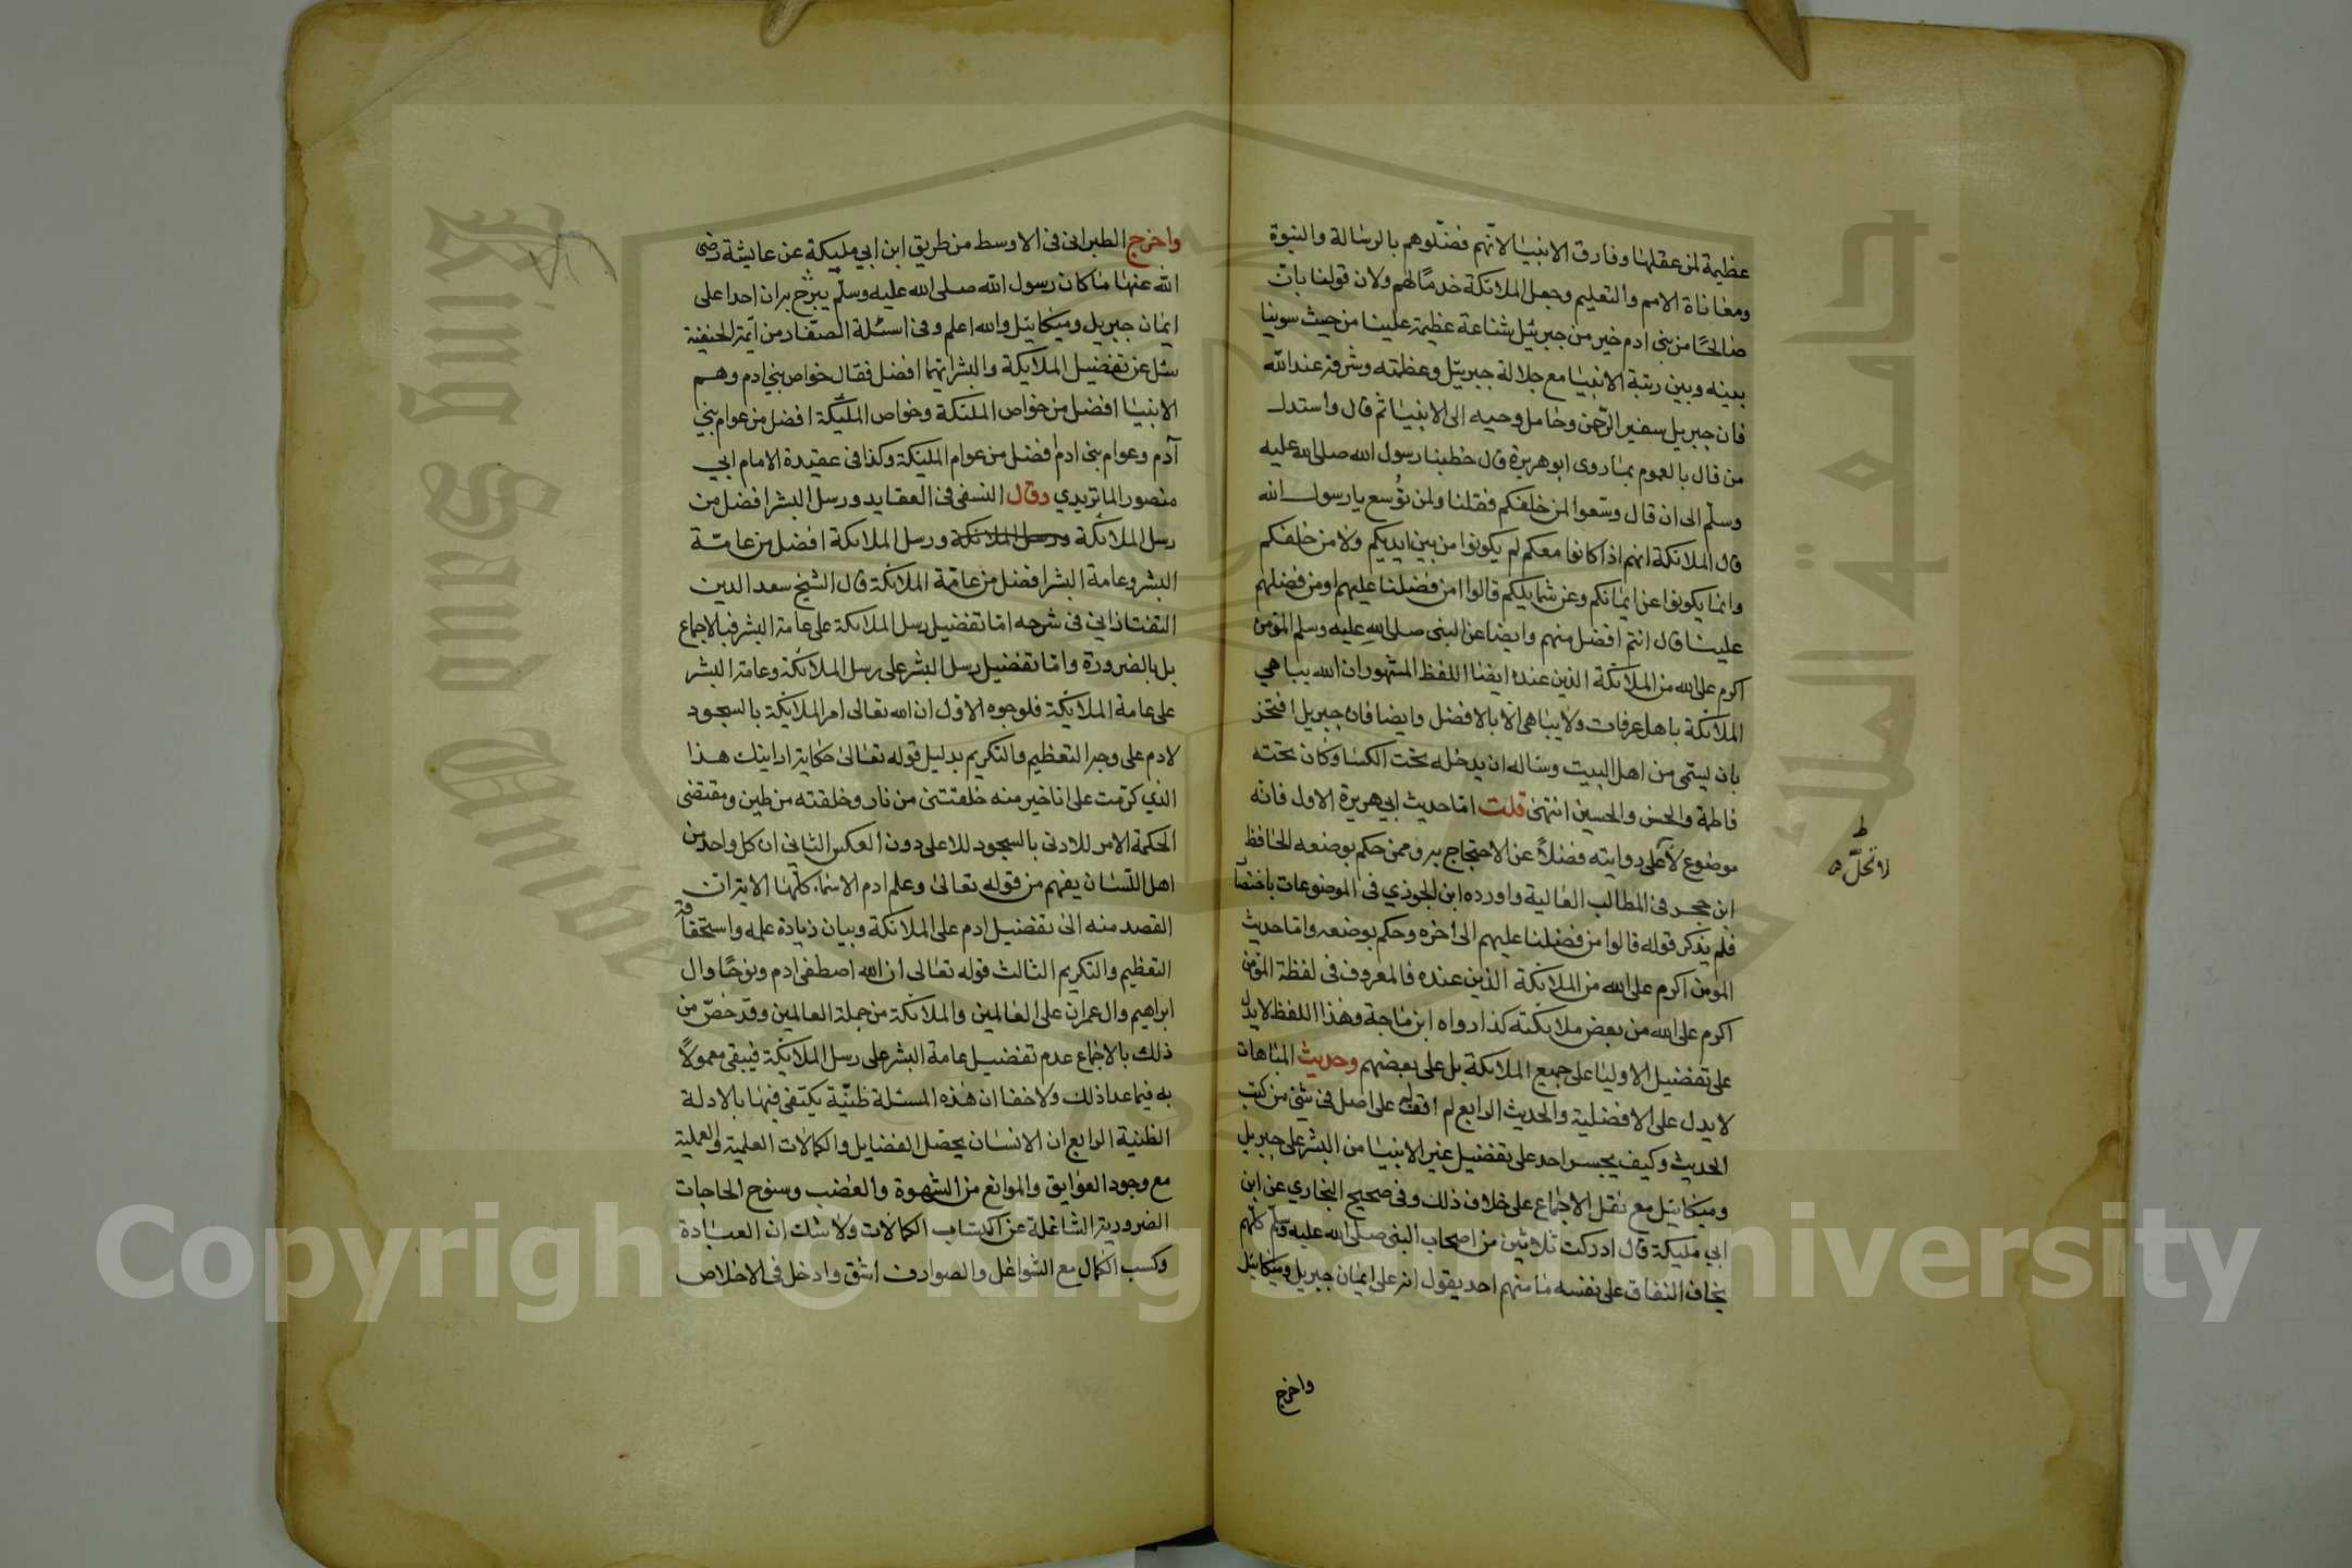 عظيمة لمن عقلها وفارق الانبيا لانهم فضلوهم بالرسالة والنبوة
ومعاناة الامم والتعليم وجعل الملائكة خدمًا لهم ولان قولنا بان
صالحًا من بنى ادم خير من جبرئل شناعة عظيمة علينا من حيث سوينا
بينه وبين رتبة الانبيا مع جلالة جبرئل وعظمته وشرفه عند الله
فان جبريل سفير الرحمن وحامل وحيه الى الانبيا ثم قال واستدل
من قال بالعموم بما روى ابو هريرة قال خطبنا رسول الله صلى الله عليه
وسلم الى ان قال وسعوا لمن خلفكم فقلنا ولمن نوسع يا رسول الله
قال الملائكة انهم اذا كانوا معكم لم يكونوا من بين ايديكم ولا من خلفكم
وانما يكونوا عن ايمانكم وعن شمايلكم قالوا امن فضلنا عليهم او من فضلهم
علينا قال انتم افضل منهم وايضا عن النبى صلى الله عليه وسلم المؤمن
اكرم على الله من الملائكة الذين عنده ايضا اللفظ المشهور ان الله يباهي
الملائكة باهل عرفات ولا يباهى الا بالافضل وايضا فان جبريل افتخر
بان يسمى من اهل البيت وساله ان يدخله تحت الكسا وكان تحته
فاطمة والحسن والحسين انتهى قلت اما حديث ابي هريرة الاول فانه
موضوع لا على روايته فضلاً عن الاحتجاج به وممن حكم بوضعه الحافظ
لا تحل
ابن حجر فى المطالب العالية واورده ابن الجوزي فى الموضوعات باختصا
فلم يذكر قوله قالوا من فضلنا عليهم الى اخره وحكم بوضعه واما حديث
المومن اكرم على الله من الملائكة الذين عنده فالمعروف فى لفظه المؤمن
اكرم على الله من بعض ملايكته كذا رواه ابن ماجة وهذا اللفظ لا يدل
على تفضيل الاوليا على جميع الملائكة بل على بعضهم وحديث المباهات
لا يدل على الافضلية والحديث الرابع لم اقف له على اصل فى شئ من كتب
الحديث وكيف يجسر احد على تفضيل غير الانبيا من البشر على جبريل
وميكائيل مع نقل الاجماع على خلاف ذلك وفى صحيح البخاري عن ابن
ابي مليكة قال ادركت ثلاثين من اصحاب النبى صلى الله عليه وسلم كلهم
يخاف النفاق على نفسه ما منهم احد يقول انه على ايمان جبريل وميكائيل
واخرج
واخرج الطبرانى فى الاوسط من طريق ابن ابي مليكة عن عايشة رضى
الله عنها ما كان رسول الله صلى الله عليه وسلم يبرح بران احدا على
ايمان جبريل وميكائيل والله اعلم وفى اسئلة الصفار من ايمة الحنفية
سئل عن تفضيل الملايكة والبشر ايهما افضل فقال خواص بني ادم وهم
الانبيا افضل من خواص الملئكة وخواص الملئكة افضل من عوام بني
آدم وعوام بنى ادم افضل من عوام الملئكة وكذا فى عقيدة الامام ابي
منصور الماتريدي وقال النسفى فى العقايد ورسل البشر افضل من
رسل الملائكة ورسل الملائكة ورسل الملائكة افضل من عامة
البشر وعامة البشر افضل من عامة الملائكة قال الشيخ سعد الدين
التفتازاني فى شرحه اما تفضيل رسل الملائكة على عامة البشر فبالاجماع
بل بالضرورة واما تفضيل رسل البشر على رسل الملائكة وعامة البشر
على عامة الملائكة فلوجوه الاول ان الله تعالى امر الملائكة بالسجود
لادم على وجه التعظيم والتكريم بدليل قوله تعالى حكاية ارايتك هذا
الذي كرمت على انا خير منه خلقتنى من نار وخلقته من طين ومقتضى
الحكمة الامر للادنى بالسجود للاعلى دون العكس الثانى ان كل واحد من
اهل اللسان يفهم من قوله تعالى وعلم ادم الاسماء كلها الاية ان
القصد منه الى تفضيل ادم على الملائكة وبيان زيادة علمه واستحقاقه
التعظيم والتكريم الثالث قوله تعالى ان الله اصطفى ادم ونوحًا وال
ابراهيم وال عمران على العالمين والملائكة من جملة العالمين وقد خصّ من
ذلك بالاجماع عدم تفضيل عامة البشر على رسل الملائكة فيبقى معمولًا
به فيما عدا ذلك ولا خفا ان هذه المسئلة ظنيّة يكتفى فيها بالادلة
الظنية الرابع ان الانسان يحصل الفضايل والكمالات العلمية والعملية
مع وجود العوايق والموانع من الشهوة والغضب وسنوح الحاجات
الضرورية الشاغلة عن اكتساب الكمالات ولا شك ان العبادة
وكسب الكمال مع الشواغل والصوارف اشق وادخل فى الاخلاص
King Saud Unive
جامعة الملك
Copyright © King Saud University